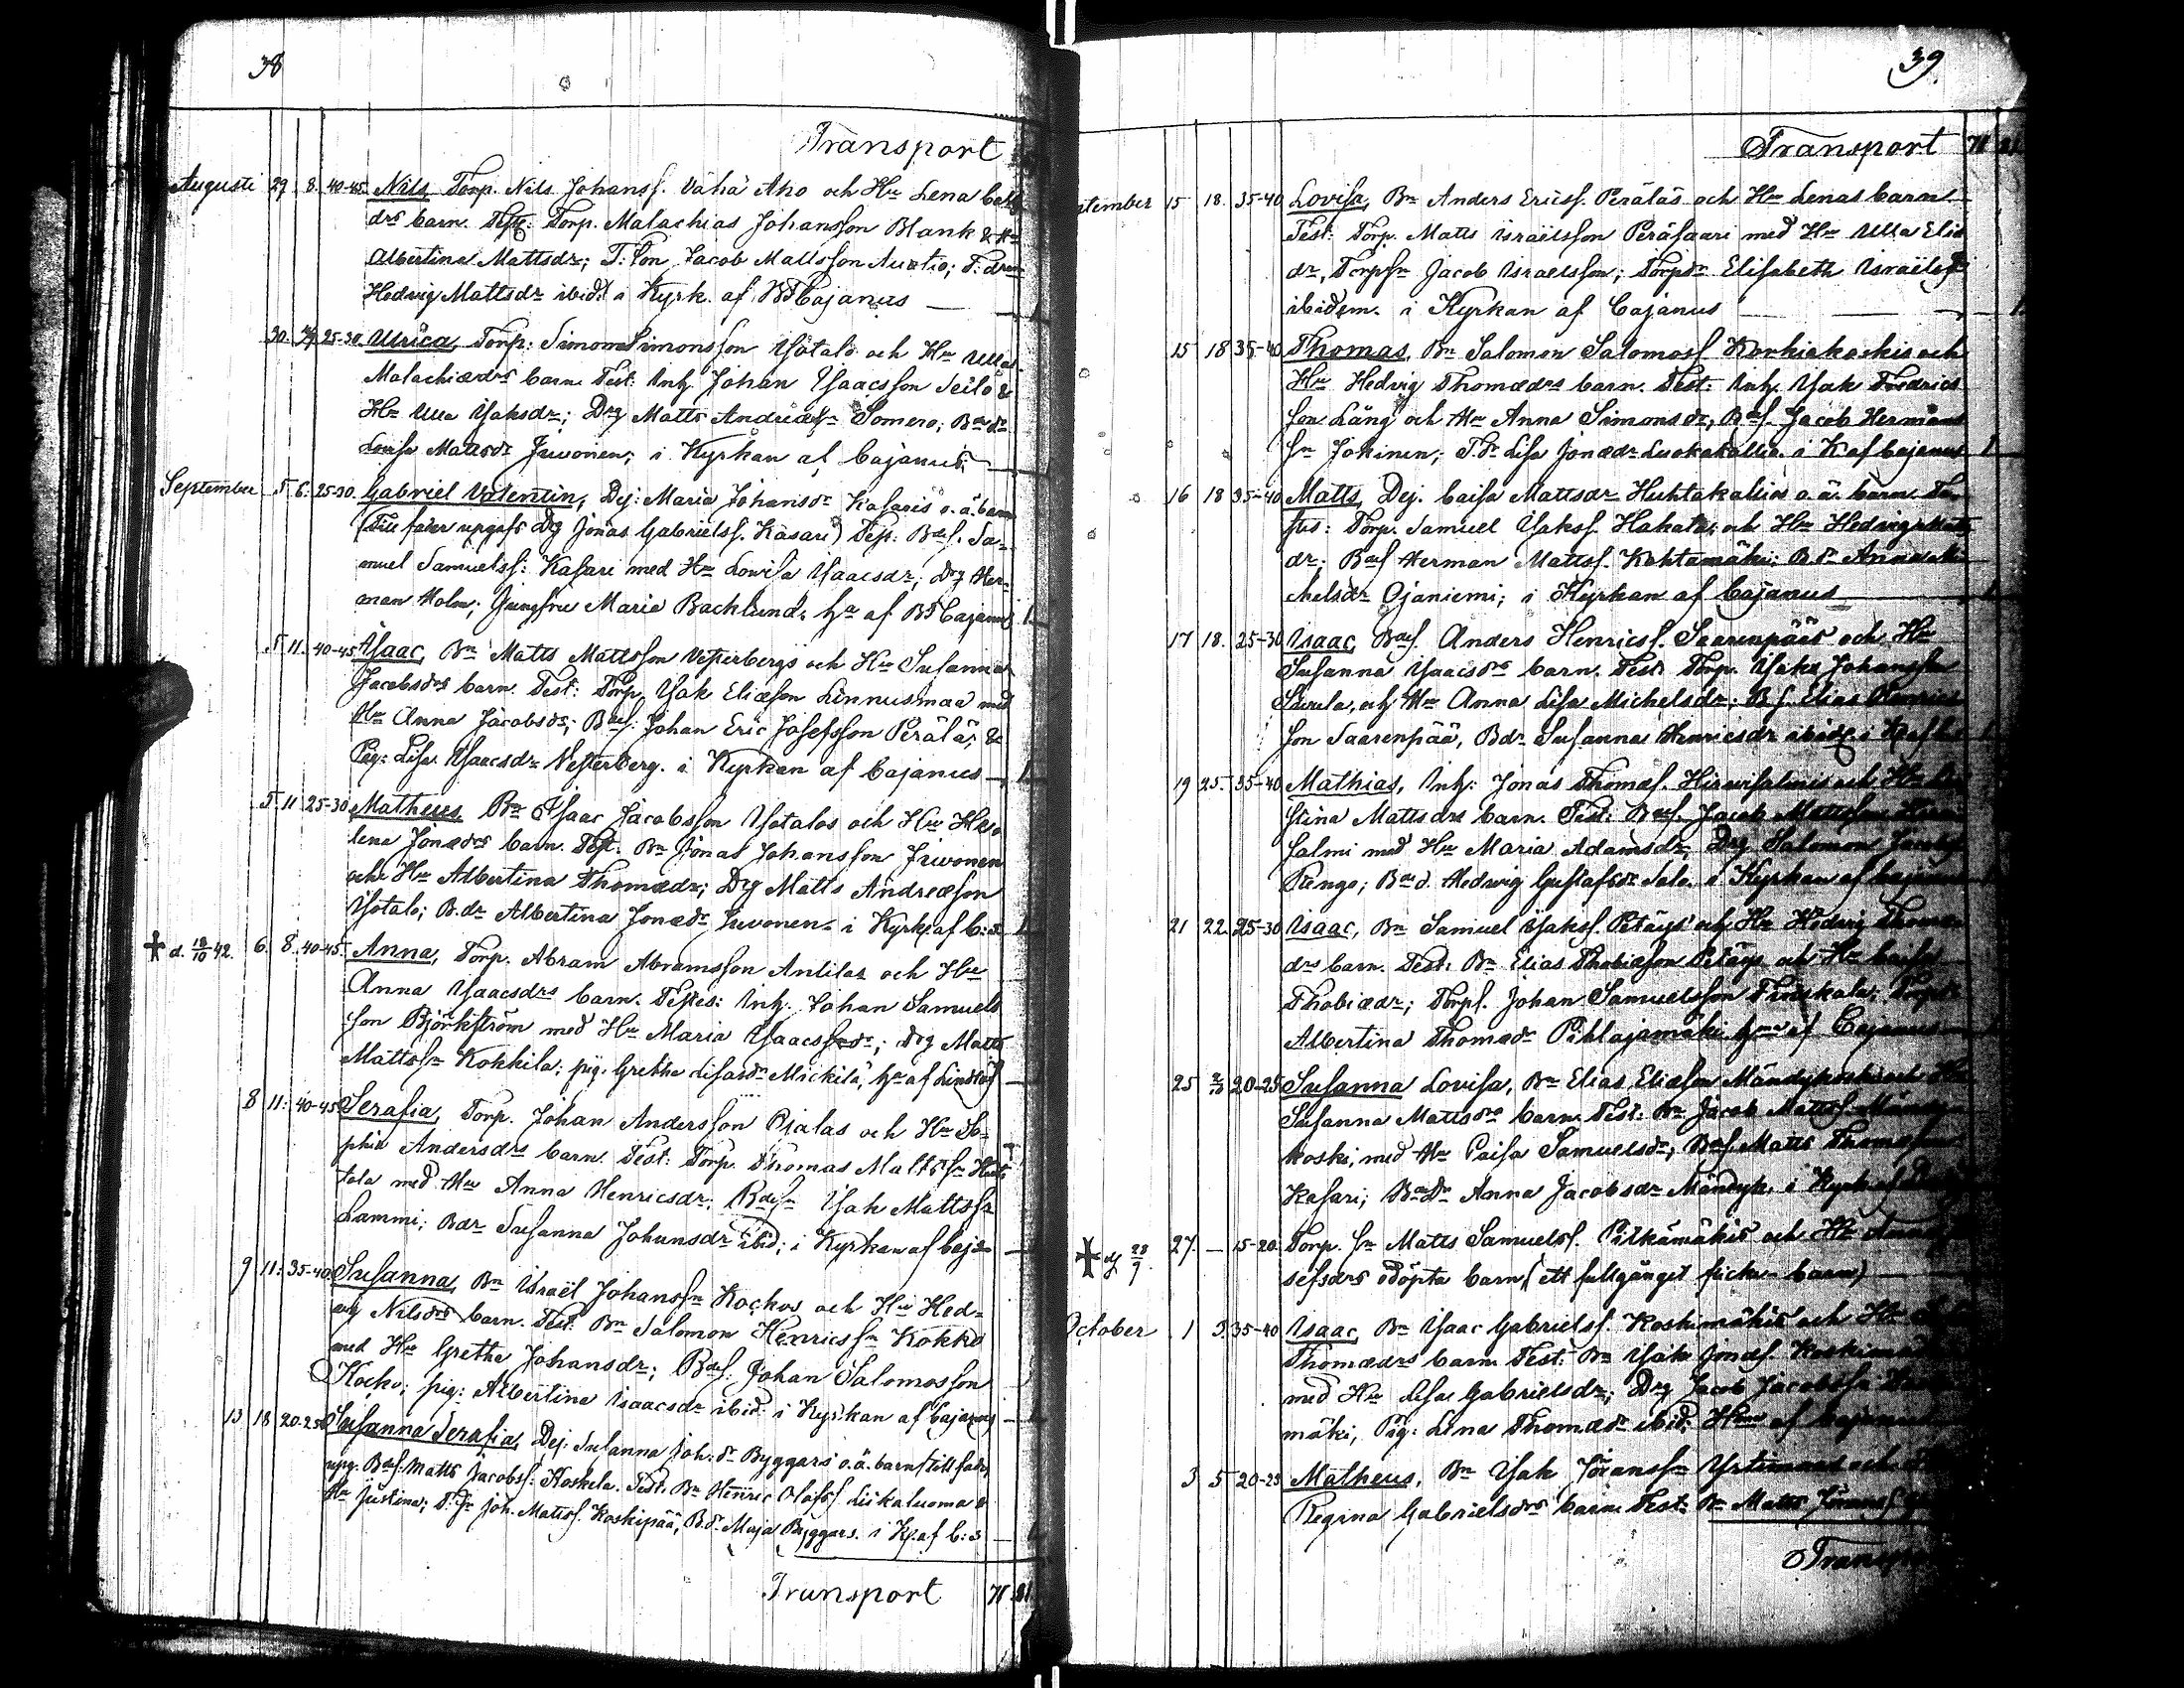 38
Transport
Augusti 29. 8. 40-45. Nils, Torp. Nils Johanss. Vähä Aho och Hu Lena
drs barn. Test: Torp. Malachias Johansson Blank & Hu
Albertina Mattsdr; T: son Jacob Mattsson Autio; T: dr
Hedvig Mattsdr ibid: i Kyrk. af Cajanus
30. 25-30. Ulrica, Torp: Simon Simonsson Ysotalo och Hu Ullas
Malachiædrs barn. Test: Inh. Johan Ysaacsson Seilo &
Hu Ulla Ysaksdr; Drg Matts Andreæsn Somero; Bdr
Lovisa Mattsdr Juvonen; i Kyrkan af Cajanus
September 5. 6. 25-30. Gabriel Valentin, Dej: Maria Johansdr Kasaris o. ä. barn
(Till fader uppgafs Drg Jonas Gabrielss. Kasari) Test: Bdes. Sa-
muel Samuelss: Kasari med Hu Lovisa Ysaacsdr; Drg Her-
man Holm; Jungfru Maria Backlund; af Cajanus 1
5. 11. 40-45. Ysaac, Bn Matts Mattsson Vesterbergs och Hu Susanna
Jacobsdrs barn. Test: Torp. Ysak Eliæson Linnusmaa med
Hu Anna Jacobsdr; Bdes: Johan Eric Josefsson Perälä; &
Pig: Lisa Ysaacsdr Vesterberg. i Kyrkan af Cajanus 1
5. 11. 25-30. Matheus, Bn Ysaac Jacobsson Ysotalos och Hu Hele-
lena Jonædrs barn. Test: Bn Jonas Johansson Juvonen
och Hu Albertina Thomædr; Drg Matts Andreæson
Ysotalo; B.dr Albertina Jonædr Juvonen. i Kyrk: af C:s 1
d. 18/10 42. 6. 8. 40-45. Anna, Torp. Abram Abramsson Antilas och Hu
Anna Ysaacsdrs barn. Testes: Inh. Johan Samuels
son Björkström med Hu Maria Ysaacsdr; Drg Matts
Mattssn Kokkila; pig. Gretha Mickilä,
8 11. 40-45. Serafia, Torp. Johan Andersson Ojalas och Hu So-
phia Andersdrs barn. Test: Torp. Thomas Mattssn
tala med Hu Anna Henricsdr; Bdesn Ysak Mattssn
Lammi; Bdr Susanna Johansdr ibid; i Kyrkan af Caj:s
9 11. 35-40. Susanna, Bn Israël Johanssn Kockos och Hu Hed-
vig Nilsdrs barn. Test: Bn Salomon Henricssn Kokko
med Hu Grethe Johansdr; Bdes: Johan Salomosson
Kocko; pig: Albertina Isaacsdr ibid: i Kyrkan af Cajanus
13 18 20-25 Susanna Serafia, Dej: Susanna Joh:dr Byggars o. ä. barn (till fader
upg. Bdes. Matts Jacobss: Koskela. Test: Bn Henric Olofss. Liikaluoma &
Hu Justina; T. Sn Joh. Mattss. Koskipää, B.dr Maja Byggars. i K. af C:s
Transport 71 81
39
Transport 71 81
September 15 18. 35-40 Lovisa, Bn Anders Ericss. Peräläs och Hu Lenas barn.
Test: Torp. Matts Israëlsson Peräsaari med Hu Ulla Eliæ
dr, Torpsn Jacob Israelsson; Torpdr Elisabeth Israëlsdr
ibidem. i Kyrkan af Cajanus 1
15 18 35-40 Thomas, Bn Salomon Salomoss. Korkiakoskis och
Hu Hedvig Thomædrs barn. Test: Inh. Ysak Fredrics
son Läng och Hu Anna Simonsdr; Bdes. Jacob Hermans
sn Jokinen; T. dr Lisa Jonædr Luokakallio. i K af Cajanus 1
16 18 35-40 Matts, Dej. Caisa Mattsdr Huhtakallios o. ä. barn. Te-
stes: Torp. Samuel Ysakss. Hakala; och Hu Hedvig Matts
dr; Bdes Herman Mattss. Kohtamäki; B. dr Anna Mi-
chelsdr Ojaniemi; i Kyrkan af Cajanus 1
17 18. 25-30 Isaac, Bdes. Anders Henricss. Saarenpääs och Hu
Susanna Ysaacsdrs barn. Test: Torp. Ysaks Johansson
och Hu Anna Lisa Michelsdr; B. s. Elias Henrics
son Saarenpää, Bdr Susanna Henricsdr ibid; i K af C:s 1
19 25. 35-40 Mathias, Inh: Jonas Thomæs. Hirvisalmis och Hu
stina Mattsdrs barn. Test: Bdes. Jacob Mattsson
salmi med Hu Maria Adamsdr; Drg Salomon
Rengo; Bd. Hedvig Gustafsdr Salo. i Kyrkan af Cajanus
21 22. 25-30 Isaac, Bn Samuel Ysakss. Petäys och Hu Hedvig Thomæ-
drs barn. Test: Bn Elias Thobiæson Petäys och Hu Caisa
Thobiædr; Torps. Johan Samuelsson
Albertina Thomædr Pihlajamäki af Cajanus
25 2/10 20-25 Susanna Lovisa, Bn Elias Eliæson Mändykoski och Hu
Susanna Mattsdrs barn. Test: Bn Jacob Mattss. Mändy-
koski, med Hu Caisa Samuelsdr; Bdes. Matts
Kasari; Bdr Anna Jacobsdr Mändyk. i Kyrk.
d. 28/9 27. — 15-20. Torp. sn Matts Samuelss. Pitkämäkis och Hu
sefsdrs odöpta barn (ett fullgånget flicke-barn)
October 1 3 35-40 Isaac, Bn Ysaac Gabrielss. Koskimäkis och Hu
Thomædrs barn. Test: Bn Ysak Jonæs.
med Hu Lisa Gabrielsdr; Drg Jacob Jacobssn
mäki, Pig: Lena Thomædr ibid; af Cajanus
3 5 20-25 Matheus, Bn Ysak Göranssn och
Regina Gabrielsdrs barn. Test: Bn Matts
Transport